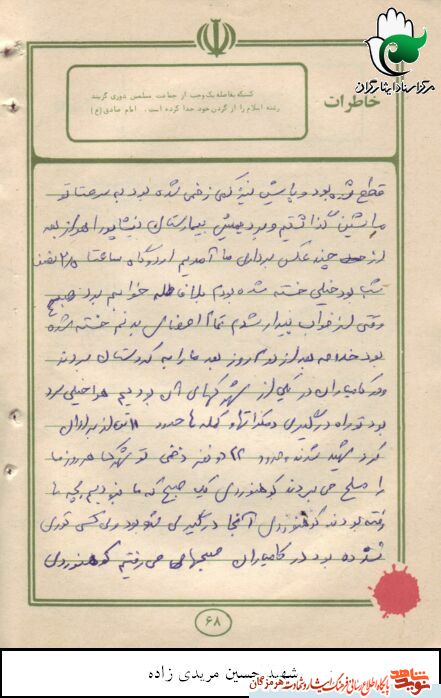 مرکز اسناد ایثارگران
خاطرات
کسیکه بفاصله یک وجب از جماعت مسلمین دوری گزیند
رشته اسلام را از گردن خود جدا کرده است. امام صادق (ع)
قطع شده بود و پایش نیز کمی زخمی شده بود به سرعت تو
ماشین گذاشتیم و بردیمش بیمارستان نیشابور اهواز بعد
از چند عکس برداری ما آمدیم اردوگاه ساعت ۲/۵ نصف
شب بود خیلی خسته شده بودم بلافاصله خوابم برد صبح
وقتی از خواب بیدار شدم تمام اعضای بدنم خسته شده
بود خلاصه بعد از دو روز بعد ما را به کردستان بردند
و در کامیاران در یکی از شهرکهای آن بودیم هوا خیلی سرد
بود تو راه درگیری دمکراتها و کمله ها حدود ۱۱ تن از برادران
کرد شهید شدند و حدود ۲۲ نفر زخمی تو شهرک هر روز ما
را مسلح می بردند کوهنوردی یک صبح که ما نبودیم بچه ها
رفته بودند کوهنوردی آنجا درگیری شده بود ولی کسی طوری
نشده بود در کامیاران صبحها می رفتیم کوهنوردی
۶۸
شهید حسین مریدی زاده
نوید شاهد
پایگاه اطلاع رسانی فرهنگ ایثار و شهادت هرمزگان